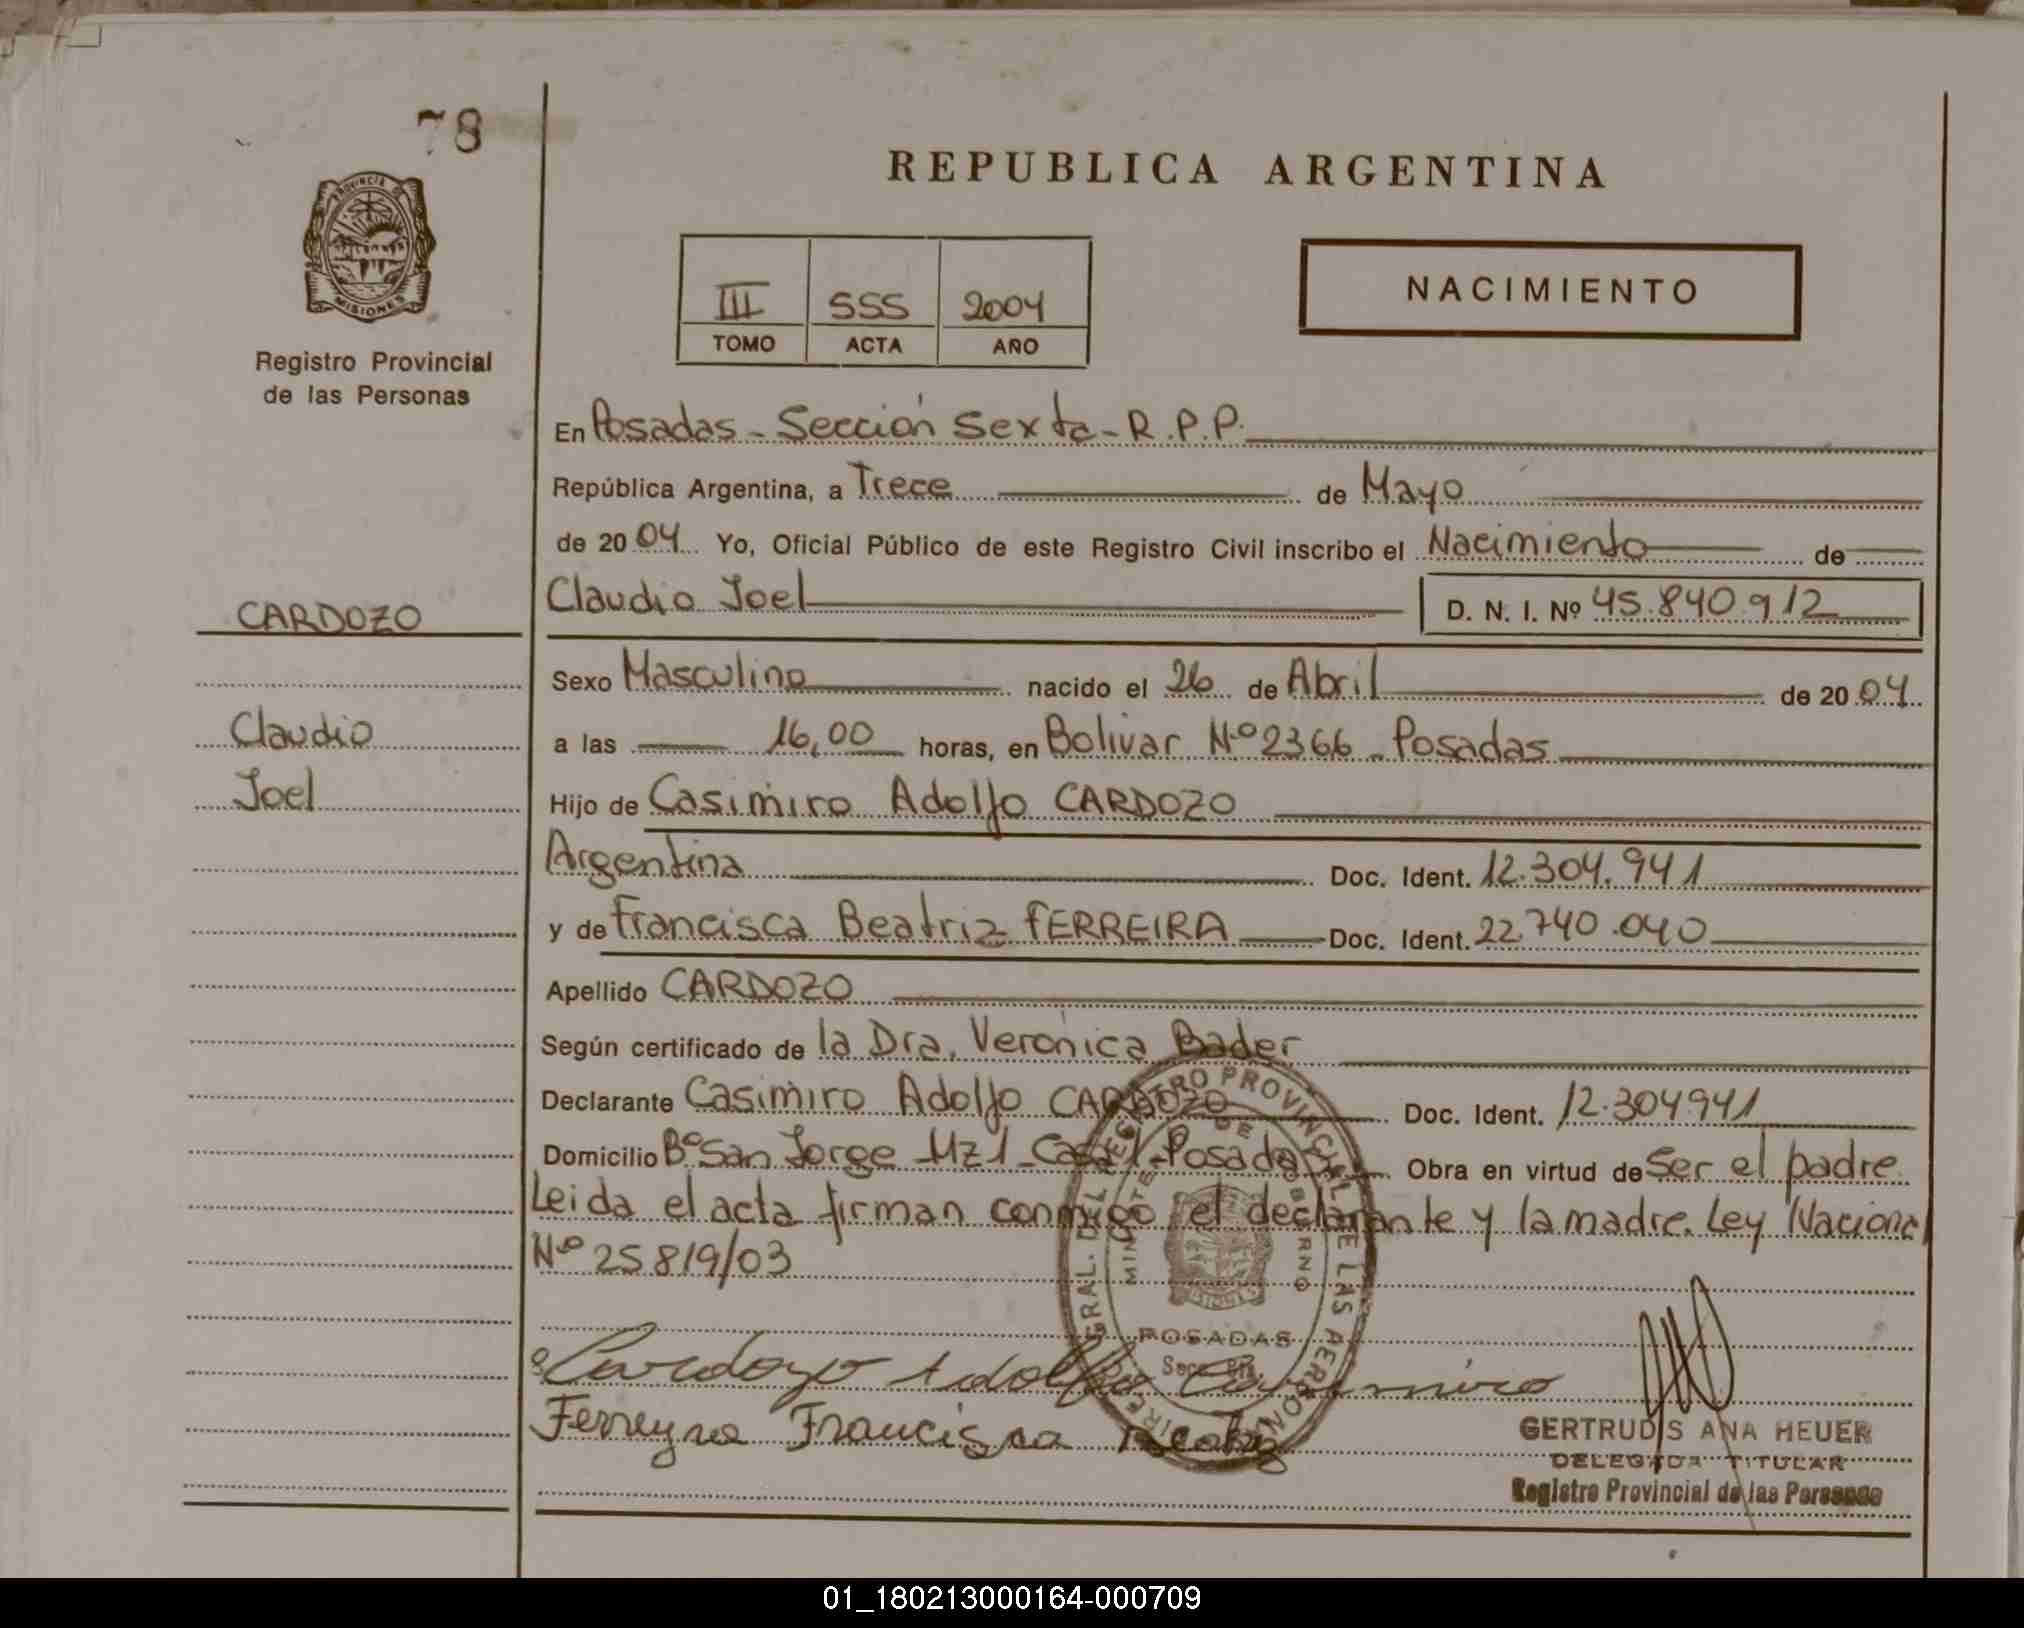 78
PROVINCIA DE
MISIONES
Registro Provincial
de las Personas
REPUBLICA ARGENTINA
III 555 2004
TOMO ACTA AÑO
NACIMIENTO
En Posadas - Sección Sexta - R.P.P.
República Argentina, a Trece de Mayo
de 2004 Yo, Oficial Público de este Registro Civil inscribo el Nacimiento de
Claudio Joel D. N. I. Nº 45.840.912
CARDOZO
Claudio
Joel
Sexo Masculino nacido el 26 de Abril de 2004
a las 16,00 horas, en Bolivar Nº 2366 - Posadas
Hijo de Casimiro Adolfo CARDOZO
Argentina Doc. Ident. 12.304.941
y de Francisca Beatriz FERREIRA Doc. Ident. 22.740.040
Apellido CARDOZO
Según certificado de la Dra. Verónica Bader
Declarante Casimiro Adolfo CARDOZO Doc. Ident. 12.304941
Domicilio Bº San Jorge Mz 1 - Casa 1 - Posadas Obra en virtud de Ser el padre
Leida el acta firman conmigo el declarante y la madre. Ley Nacional
Nº 25819/03
GRAL. DEL REGISTRO PROVINCIAL DE LAS PERSONAS
POSADAS
Cardozo Adolfo Casimiro
Ferreyra Francisca
GERTRUDIS ANA HEUER
DELEGADA TITULAR
Registro Provincial de las Personas
01_180213000164-000709